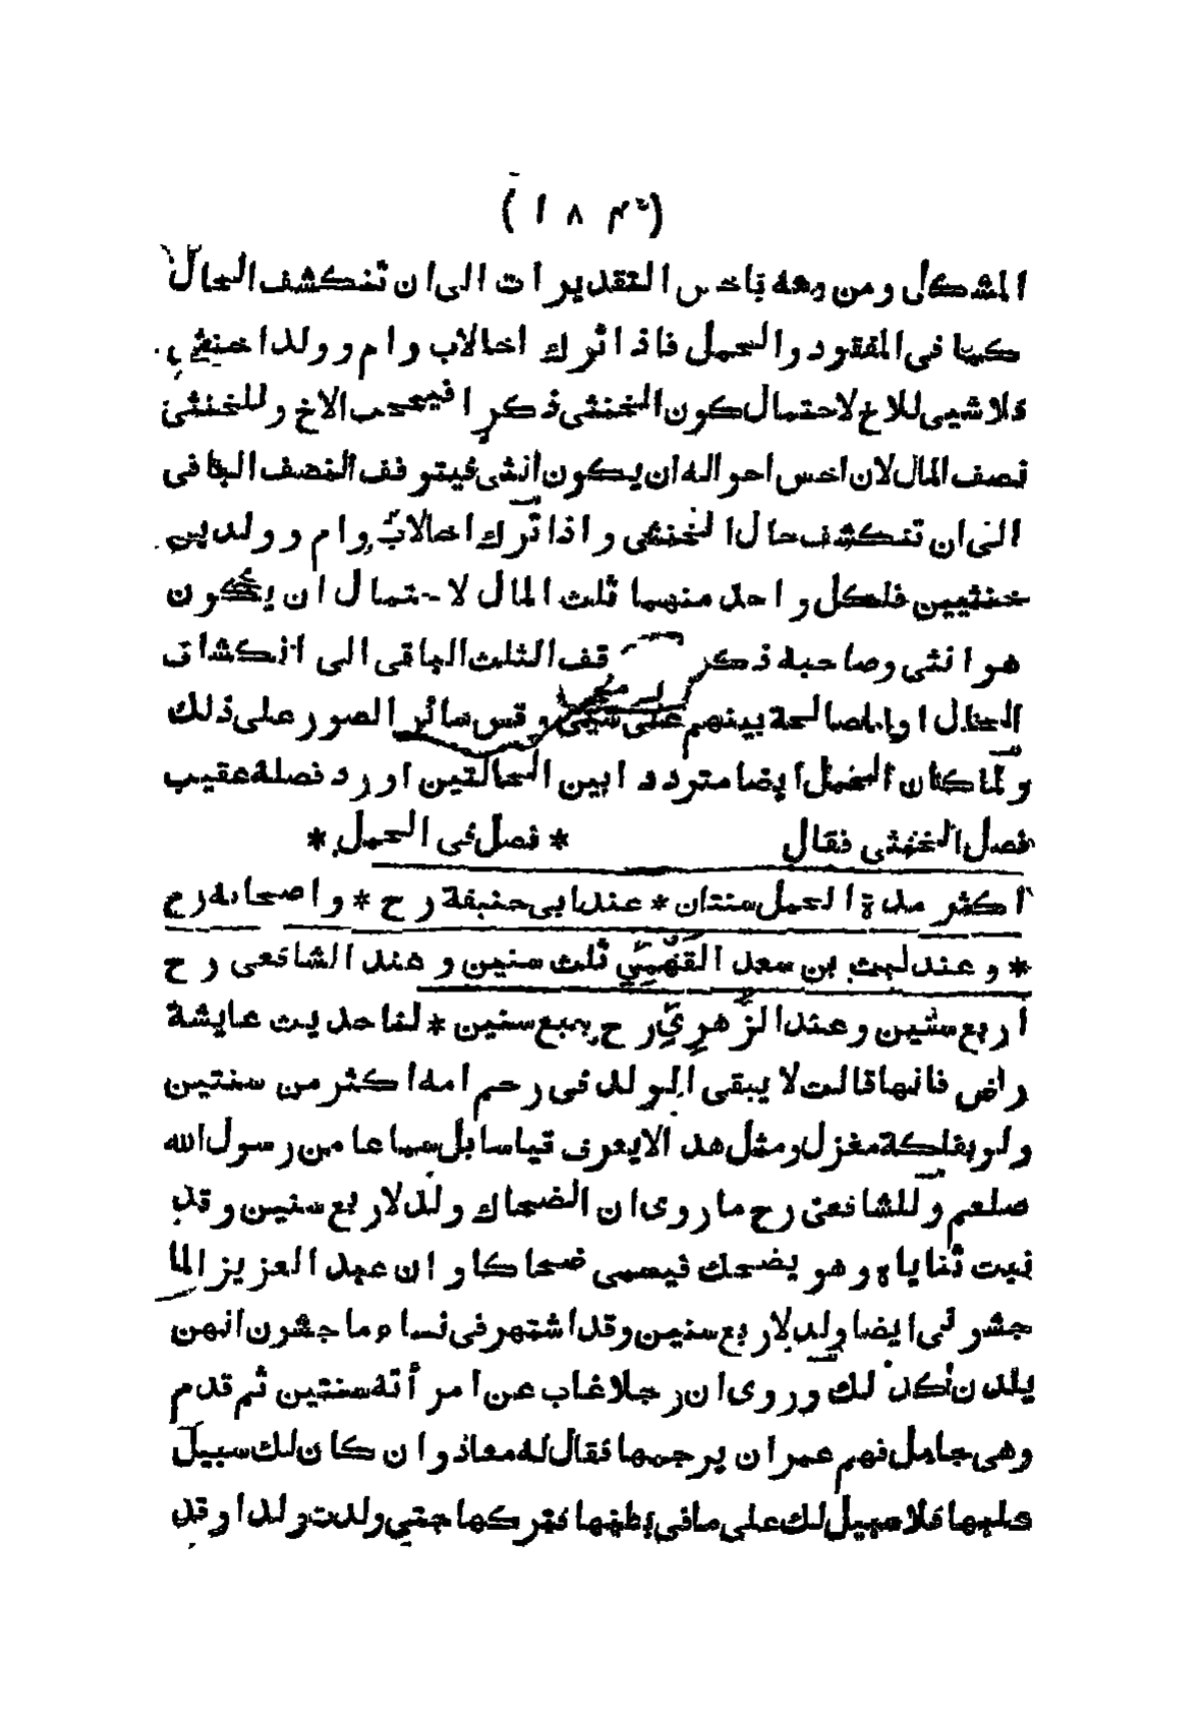 (١٨٤)
المشكل ومن معه باخس التقديرات الى ان تنكشف الحال
كما فى المفقود والحمل فاذا ترك اخا لاب وام وولدا خنثى
فلا شيى للاخ لاحتمال كون الخنثى ذكرا فيحجب الاخ وللخنثى
نصف المال لان اخس احواله ان يكون انثى فيتوقف النصف الباقى
الى ان تنكشف حال الخنثى واذا ترك اخا لاب وام وولدين
خنثيين فلكل واحد منهما ثلث المال لاحتمال ان يكون
هو انثى وصاحبه ذكر قف الثلث الباقى الى انكشاف
الحال او المصالحة بينهم على شيى وقس سائر الصور على ذلك
ولما كان الحمل ايضا مترددا بين الحالتين اورد فصله عقيب
فصل الخنثى فقال * فصل فى الحمل *
اكثر مدة الحمل سنتان * عند ابى حنيفة رح * واصحابه رح
* وعند ليث بن سعد الفهمى ثلث سنين وعند الشافعى رح
اربع سنين وعند الزهرى رح سبع سنين * لنا حديث عايشة
رض فانها قالت لا يبقى الولد فى رحم امه اكثر من سنتين
ولو بفلكة مغزل ومثل هذا لا يعرف قياسا بل سماعا من رسول الله
صلعم وللشافعى رح ما روى ان الضحاك ولد لاربع سنين وقد
نبت ثناياه وهو يضحك فيسمى ضحاكا وان عبد العزيز الما
جشونى ايضا ولد لاربع سنين وقد اشتهر فى نساء ماجشون انهن
يلدن كذلك وروى ان رجلا غاب عن امرأته سنتين ثم قدم
وهى حامل فهم عمر ان يرجمها فقال له معاذ وان كان لك سبيل
عليها فلا سبيل لك على ما فى بطنها فتركها حتى ولدت ولدا وقد